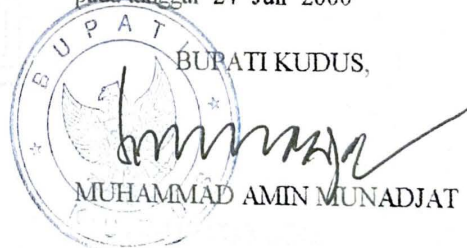 pada tanggal 27 Juli 2000
BUPATI KUDUS,
BUPAT
MUHAMMAD AMIN MUNADJAT